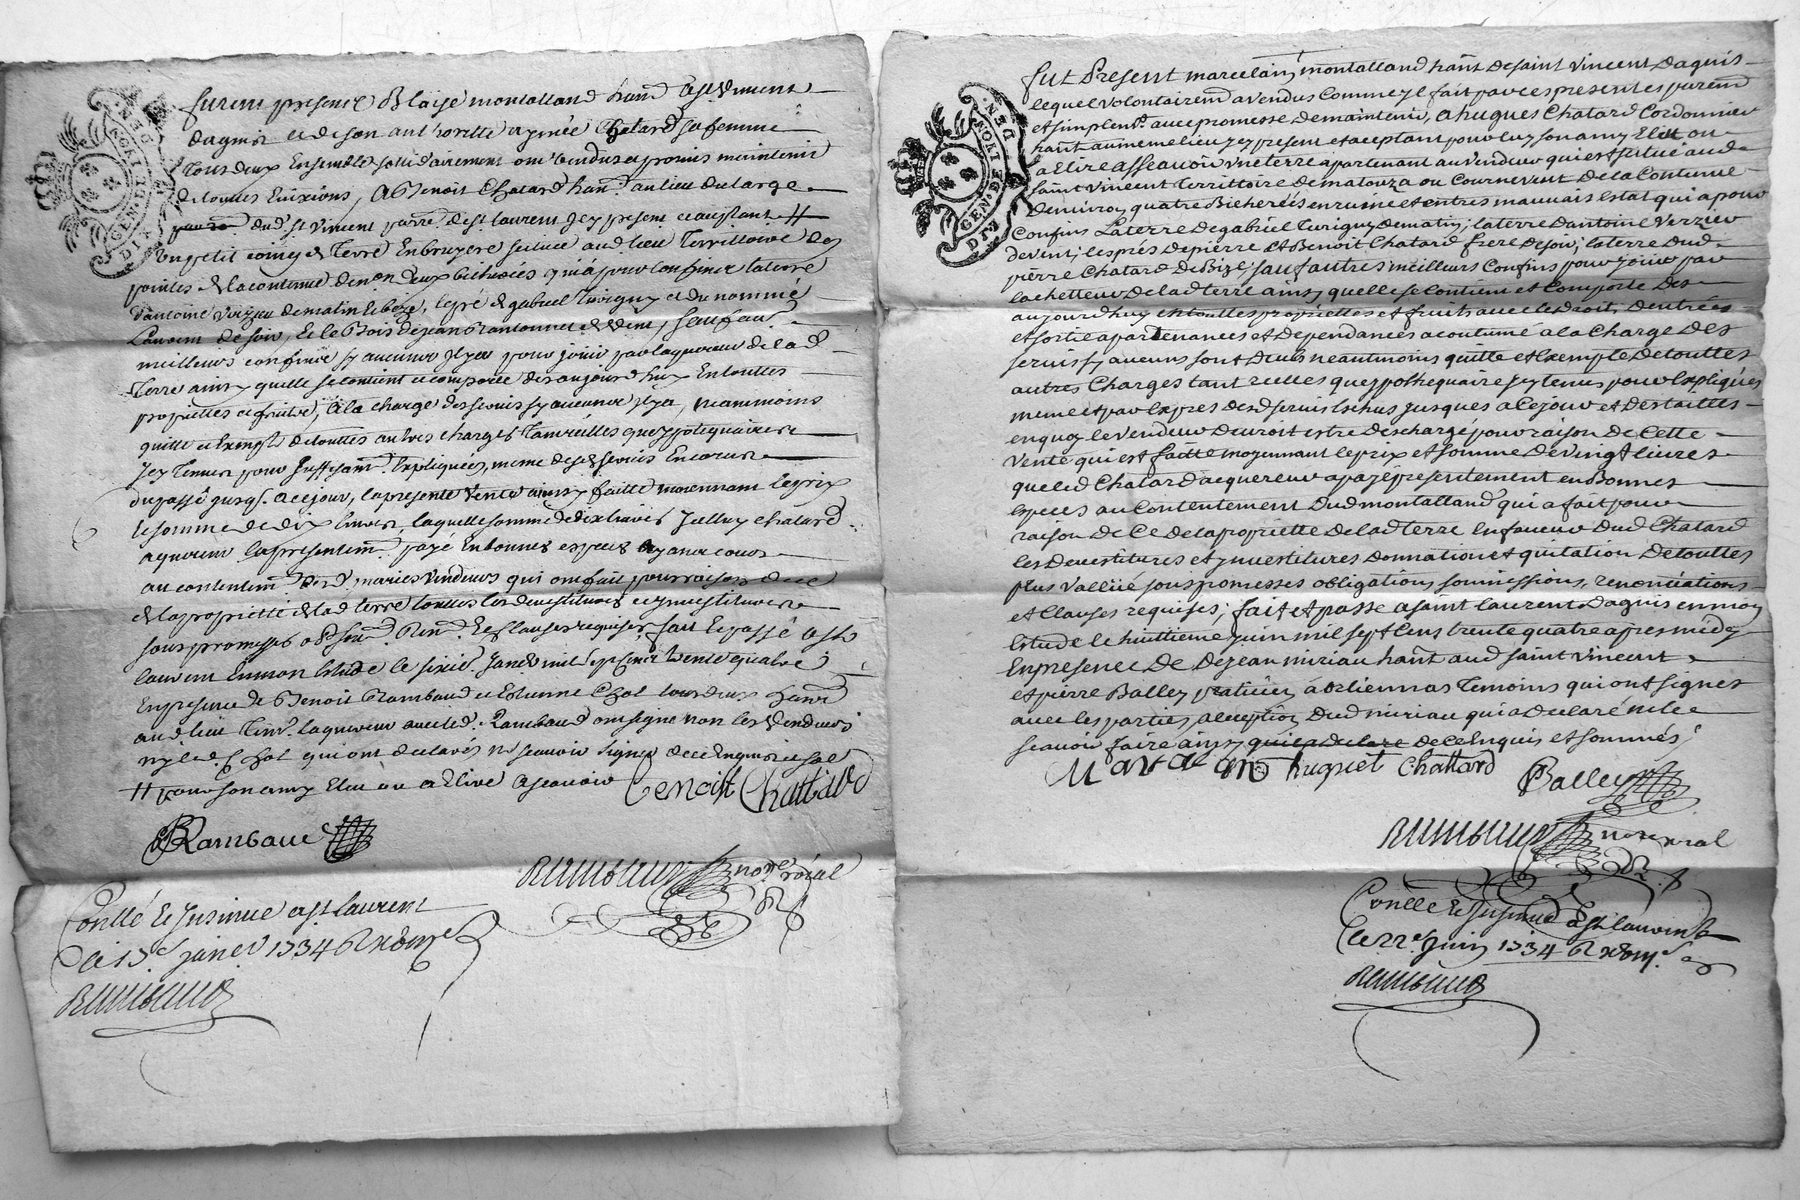 GEN. DE LION. DEN.
DIX
furent presents Blaise montalland hant a st vincent
dagnis et de son authorité aymée Chatard sa femme
tous deux Ensemble sollidairement ont vendus et promis maintenir
de touttes Euixions, A Benoit Chatard hant au lieu du large
dud st vincent parre de st laurent Jcy present et acceptant #
un petit coing de Terre En bruyere scitué aud lieu Territtoire des
pointes de la contenue denon deux bicherées qui a pour confins la terre
d'antoine verzieu de matin et bize, le pré de gabriel Turigny et du nommé
Laurent de soir, et le Bois de jean de vent, sauf aux
meilleurs confins sy aucuns Jl y a pour joüir par laquereur de lad
Terre ainsy quelle se contient et comporte des aujourdhuy En touttes
proprietés et fruits, A la charge des servis sy aucuns Jl y a, neanmoins
quitte et Exempt de touttes autres charges tant réelles que ypotequaires
Jcy Tenus pour suffisant Expliqués, meme desd servis Encourus
du passé jusqs a ce jour, la presente vente ainsy faitte moiennant le prix
et somme de dix livres laquelle somme de dix livres Jcelluy chatard
aquereur la presentemt payé En bonnes especes ayant cours
au contentemt desd mariés vendeurs qui ont fait pour raison de ce
de la proprietté de lad terre touttes les devestitures et ynvestitures
sous promesses obligs Renon Et Clauses requises fait Et passé a st
laurent En mon Estude le sixie Janer mil sept cent trente quatre
En presence de Benoit Rambaud et Estienne Chol tous deux hants
aud lieu Tem. laquereur avec led. Rambaud ont signé non les vendeurs
ny led. Chol qui ont declarés ne scavoir signer de ce Enquis et som
# pour son amy Eleu ou a Elire ascavoir Benoist Chattard
Rambaud
Rambaud notre roial
Conllé Et Jnsinué a st Laurent
Ce 13e janer 1734
Rambaud
GEN. DE LION. DEN.
DIX
fut Present marcelain montalland hant de saint vincent dagnis
lequel volontairemt a vendus comme yl fait par ces presentes purem
et simplent avec promesse de maintenir, A hugues Chatard Cordonnier
hant au meme lieu ycy present et aceptant pour luy son amy Eleu ou
a Elire asseavoir une terre apartenant au vendeur qui est scitué aud
saint vincent Territtoire de matouza ou Cournevent de la Contenue
denviron quatre Bicherées en rume et en tres mauvais Estat qui a pour
Confins La terre de gabriel Turigny de matin; la terre dantoine verzieu
de vent; les prés de pierre et Benoit Chatard frere de soir; la terre dud
pierre Chatard de Bize; sauf autres meilleurs Confins pour joüir par
lachetteur de lad terre ainsy quelle se contient et comporte des
aujourdhuy en touttes proprietes et fruits avec le Droit Dentrées
et sortie apartenances et dependances acoutumé a la Charge des
servis sy aucuns sont deus neantmoins quitte et Exempte de touttes
autres Charges tant réelles que ypothequaires ycy tenus pour Expliqués
meme et par Expres desd servis Eschus jusques a ce jour et des tailles
en quoy le vendeur devroit estre deschargé pour raison de Cette
vente qui est faitte moyennant le prix et somme de vingt livres
que led Chatard acquereur a payé presentement en Bonnes
especes au Contentement dud montalland qui a fait pour
raison de Ce de la propriette de lad terre en faveur dud Chatard
les devestitures et ynvestitures donnation et quitation de touttes
plus vallüe sous promesses obligations soumissions, renonciations
et clauses requises; fait et passé a saint laurent dagnis en mon
Estude le huittieme juin mil sept cens trente quatre apres midy
En presence de dejean miriau hant aud saint vincent
et pierre Balley praticien a orliennas Temoins qui ont signes
avec les parties a exception dud miriau qui a declaré ne le
scavoir faire ainsy qui a declare de ce Enquis et sommés
hugiet Chattard Balley
Rambaud notre roial
Conllé Et Jnsinué a st laurent
Ce 22e juin 1734
Rambaud